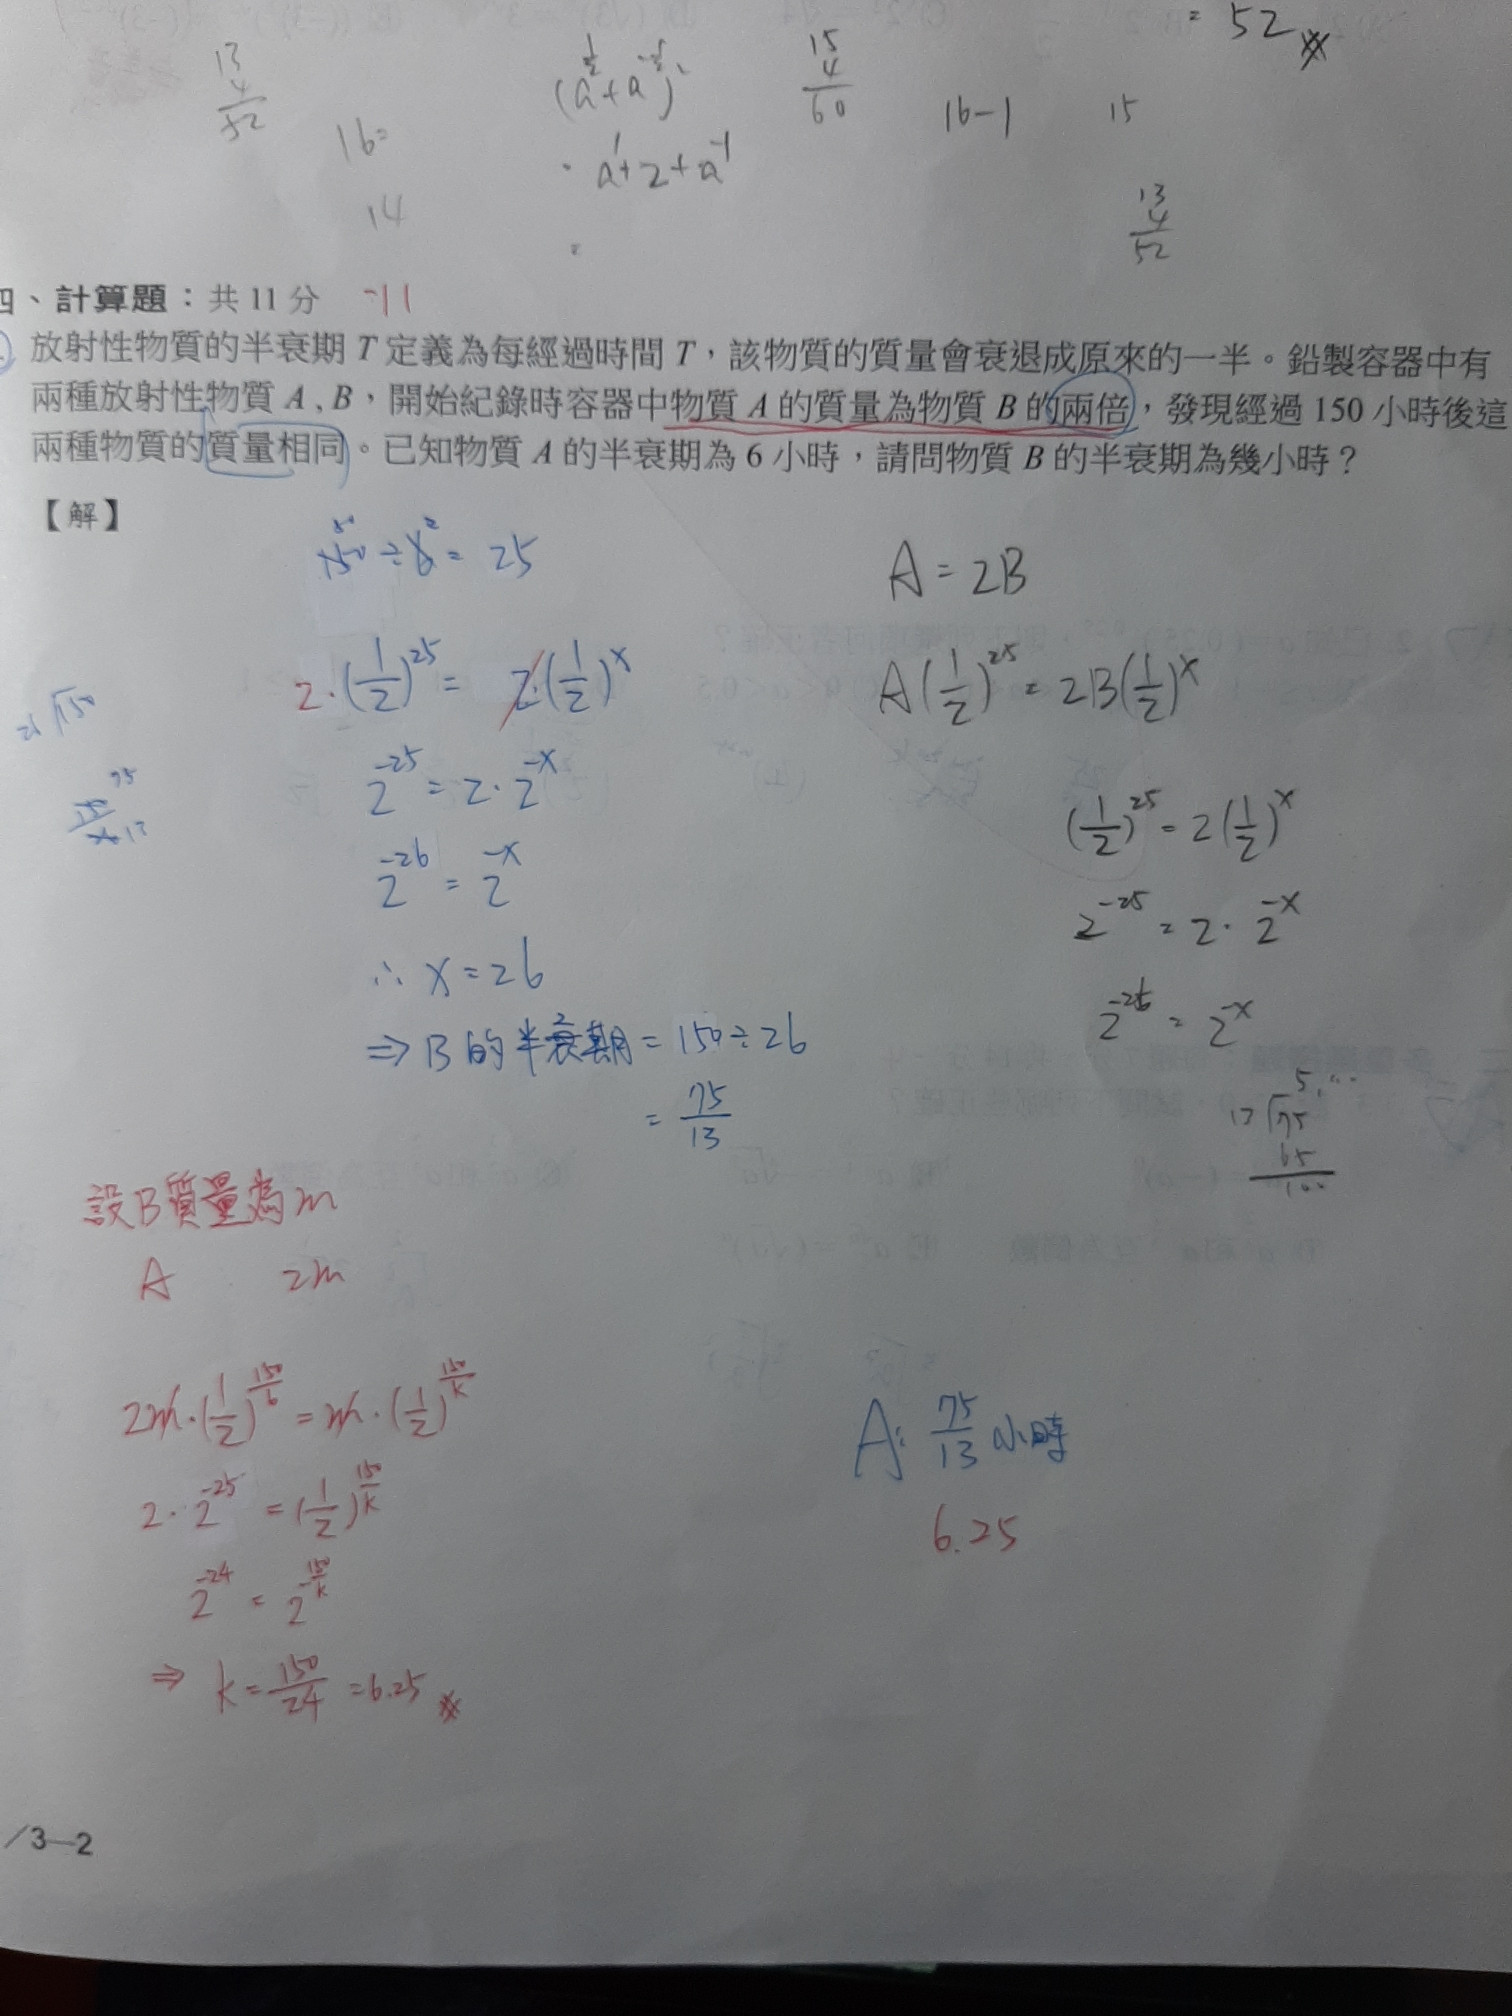 = 52
13
4
52
16=
14
(a^{1/2}+a^{-1/2})²
= a¹+2+a⁻¹
=
15
4
60
16-1
15
13
4
52
四、計算題：共 11 分 -11
放射性物質的半衰期 T 定義為每經過時間 T，該物質的質量會衰退成原來的一半。鉛製容器中有
兩種放射性物質 A , B，開始紀錄時容器中物質 A 的質量為物質 B 的兩倍，發現經過 150 小時後這
兩種物質的質量相同。已知物質 A 的半衰期為 6 小時，請問物質 B 的半衰期為幾小時？
【解】
150÷6=25
2·(1/2)^25 = 2·(1/2)^x
2^-25 = 2·2^-x
2^-26 = 2^-x
∴ x=26
⇒ B的半衰期=150÷26
= 75/13
A=2B
A(1/2)^25 = 2B(1/2)^x
(1/2)^25 = 2(1/2)^x
2^-25 = 2·2^-x
2^-26 = 2^-x
5...
13 75
65
100
設B質量為m
A 2m
2m·(1/2)^(150/6) = m·(1/2)^(150/k)
2·2^-25 = (1/2)^(150/k)
2^-24 = 2^(-150/k)
⇒ k=150/24=6.25
A: 75/13 小時
6.25
/3－2